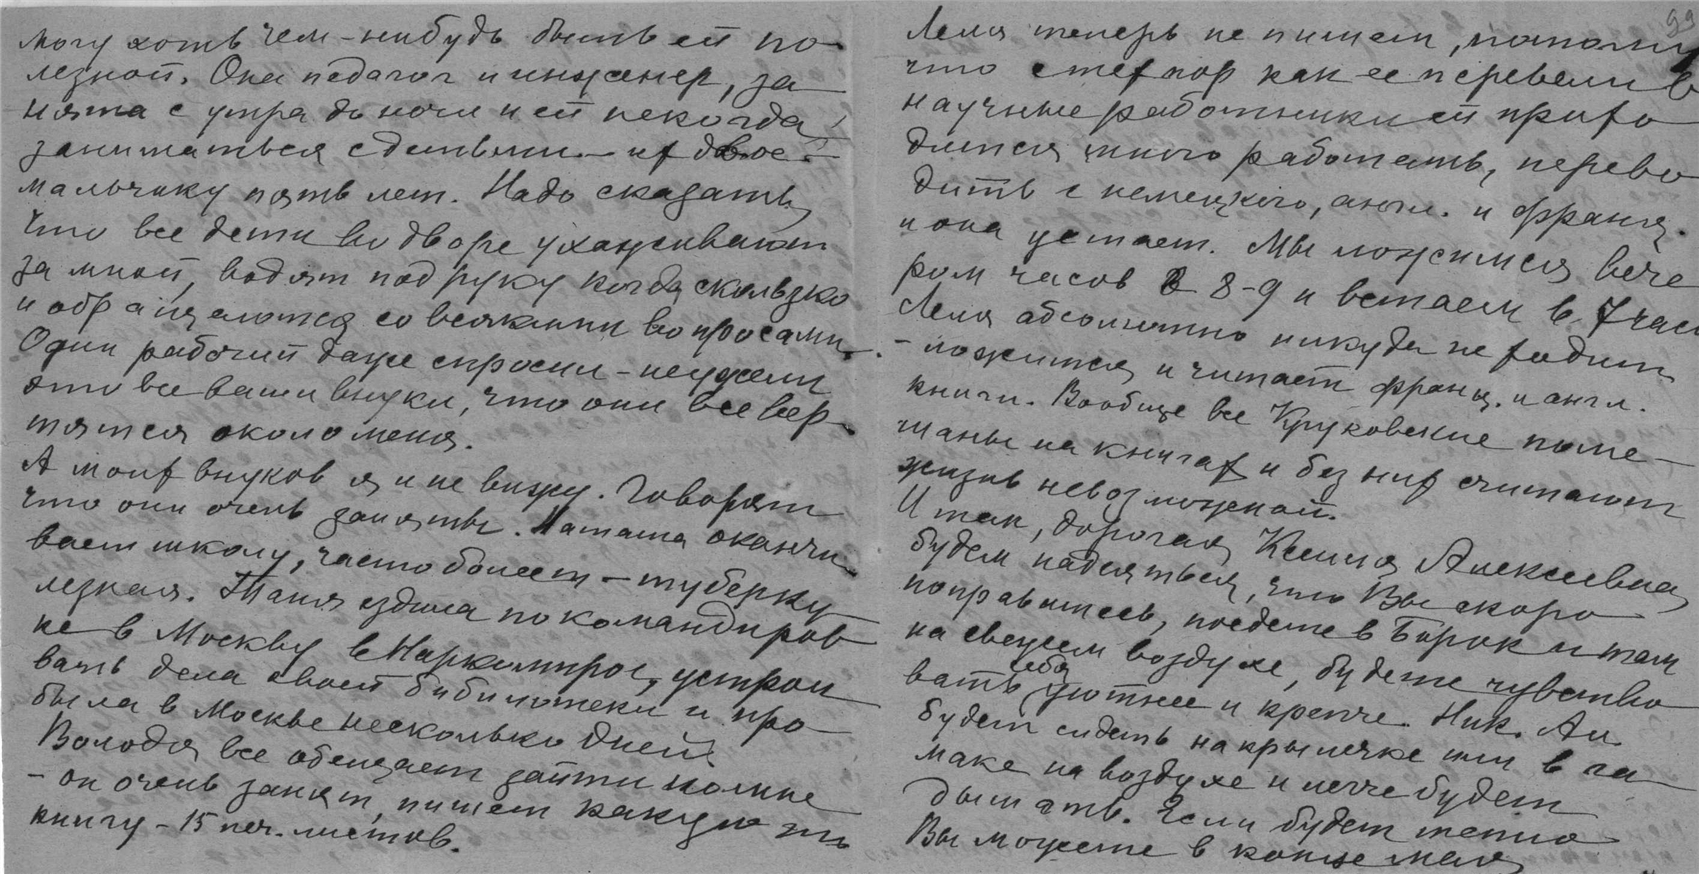 могу хоть чем-нибудь быть ей по-
лезной. Она педагог и инженер, за
нята с утра до ночи и ей некогда
заниматься с детьми - их двое -
мальчику пять лет. Надо сказать,
что все дети во дворе ухаживают
за мной, водят под руку когда скользко
и обращаются со всякими вопросами.
Один рабочий даже спросил - неужели
это все ваши внуки, что они все вер-
тятся около меня.
А моих внуков я и не вижу. Говорят
что они очень заняты. Наташа оканчи-
вает школу, часто болеет - туберку
лезная. Таня ездила по командиров
ке в Москву в Наркомпрос, устраи
вать дела своей библиотеки и про
была в Москве несколько дней.
Володя все обещает зайти ко мне
- он очень занят, пишет какую то
книгу - 15 печ. листов.
99
Леля теперь не пишет, потому
что с тех пор как ее перевели в
научные работники ей прихо
дится много работать, перево
дить с немецкого, англ. и франц.
и она устает. Мы ложимся вече
ром часов в 8-9 и встаем в 7 час
Леля абсолютно никуда не ходит
- ложится и читает франц. и англ.
книги. Вообще все Круковские поме-
шаны на книгах и без них считают
жизнь невозможной.
Итак, дорогая Ксения Алексеевна,
будем надеяться, что Вы скоро
поправитесь, поедете в Борок и там
на свежем воздухе, будете чувство
вать себя уютнее и крепче. Ник. Ал.
будет сидеть на крылечке или в га
маке на воздухе и легче будет
дышать. Если будет тепло
Вы можете в конце мая